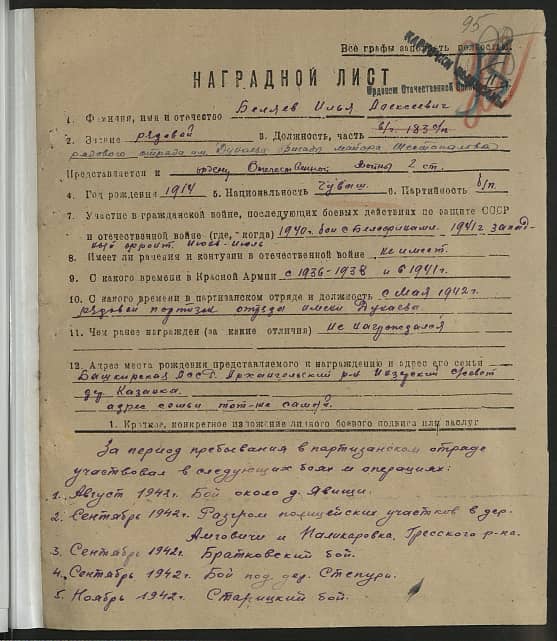 95
Все графы заполнять полностью.
КАРТОЧКА
НАГРАДНОЙ ЛИСТ
Орденом Отечественной Войны
1. Фамилия, имя и отчество Беляев Илья Алексеевич
2. Звание рядовой 3. Должность, часть
рядового отряда им. Дунаева бригады майора Шестопалова
Представляется к ордену Отечественной Войны 2 ст.
4. Год рождения 1914 5. Национальность Чуваш 6. Партийность б/п
7. Участие в гражданской войне, последующих боевых действиях по защите СССР
и отечественной войне (где, когда) 1940г. бои с Белофинами. 1941г Запад-
ный фронт. Июнь-Июль
8. Имеет ли ранения и контузии в отечественной войне не имеет.
9. С какого времени в Красной Армии с 1936-1938 и в 1941г.
10. С какого времени в партизанском отряде и должность с Мая 1942г.
рядовой партизан отряда имени Дунаева
11. Чем ранее награжден (за какие отличия) Не награждался
12. Адрес места рождения представляемого к награждению и адрес его семьи
Башкирская АССР, Архангельский р-н с/совет
дер Казанка.
адрес семьи тот-же самый.
1. Краткое, конкретное изложение личного боевого подвига или заслуг
За период пребывания в партизанском отряде
участвовал в следующих боях и операциях:
1. Август 1942г. Бой около д. Явищи.
2. Сентябрь 1942г. Разгром полицейских участков в дер.
Амговичи и Поликаровка, Гресского р-на.
3. Сентябрь 1942г. Братковский бой.
4. Сентябрь 1942г. Бой под дер. Степуры.
5. Ноябрь 1942г. Старицкий бой.